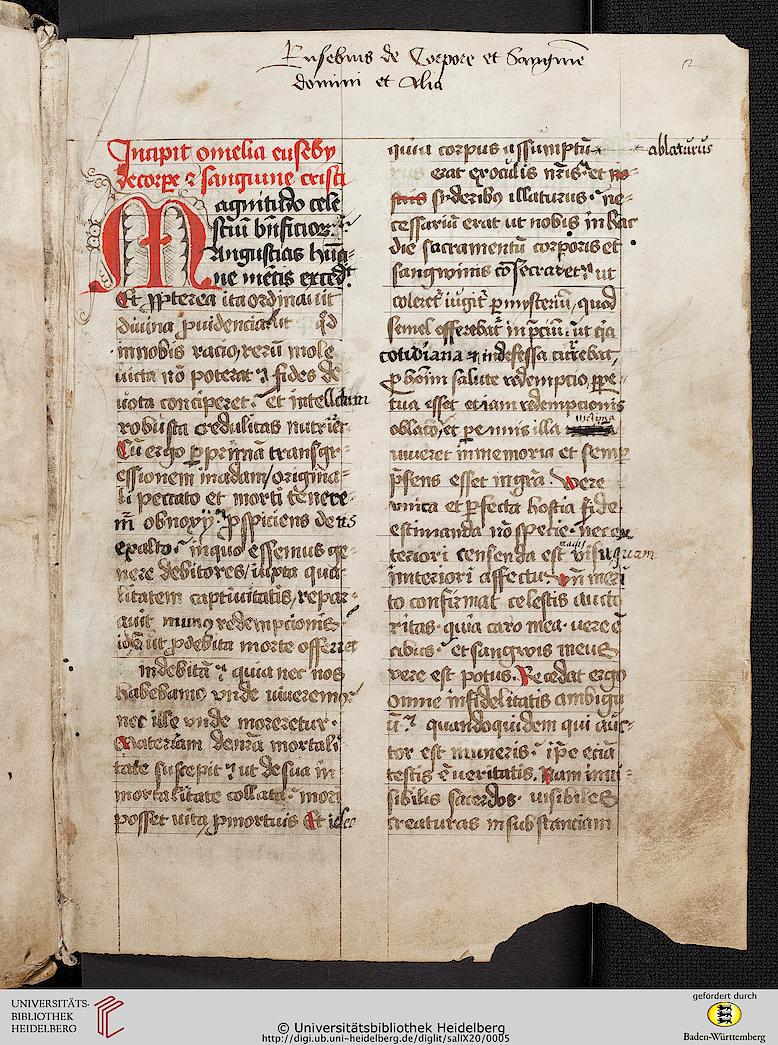 Eusebius de Corpore et Sanguine
domini et Alia
12
Incipit omelia euseby
de corpe ⁊ sanguine cristi
Magnitudo cele
stiū bn̄ficior
Angustias hūa
ne mētis exced
Et ꝓpterea ita ordinauit
diuina ꝓuidencia ut qd
in nobis racio, rerū mole
uicta nō poterat ⁊ fides de
uota conciperet et intell
robusta credulitas nutriet
Cū ergo ꝑ primā transgr
essionem in adam / origina
li peccato et morti tenere
m̄ obnoxy ꝓspiciens deus
ex alto in quo essemus ge
nere debitores / iuxta qua
litatem captiuitatis, repar
auit mun redempcionis
idē ut ꝓ debita morte offerret
indebitā quia nec nos
habebamꝰ vnde uiueremꝰ
nec ille vnde moreretur
Materiam de nr̄a mortali
tate suscepit ut de sua in
mortalitate collata mori
posset uita ꝓ mortuis Et ideo
quia corpus assumptū
erat ex oculis nr̄is et
syderibꝰ illaturus ne
cessariū erat ut nobis in hac
die sacramentū corporis et
sangwinis cōsecraret ut
coleret iugit ꝑ mysteriū, quod
semel offerebat in p̄ciū ut q̄a
cotidiana ⁊ indefessa currebat,
ꝓ hoīm salute redempcio, ꝑpe
tua esset etiam redempcionis
oblatio, et perennis illa
uictima
uiueret in memoria et semꝑ
p̄sens esset in grā. Vere
vnica et ꝑfecta hostia fide
estimanda nō specie nec ex
teriori censenda est visu
magis quam
interiori affectu vn̄ meri
to confirmat celestis aucto
ritas quia caro mea uere ē
cibus et sangwis meus
vere est potus. Recedat ergo
omne infidelitatis ambigu
ū quandoquidem qui auc
tor est muneris ip̄e eciā
testis ē ueritatis. Nam inui
sibilis sacerdos uisibiles
creaturas in substanciam
ablaturus
UNIVERSITÄTS-
BIBLIOTHEK
HEIDELBERG
© Universitätsbibliothek Heidelberg
http://digi.ub.uni-heidelberg.de/diglit/salIX20/0005
gefördert durch
Baden-Württemberg